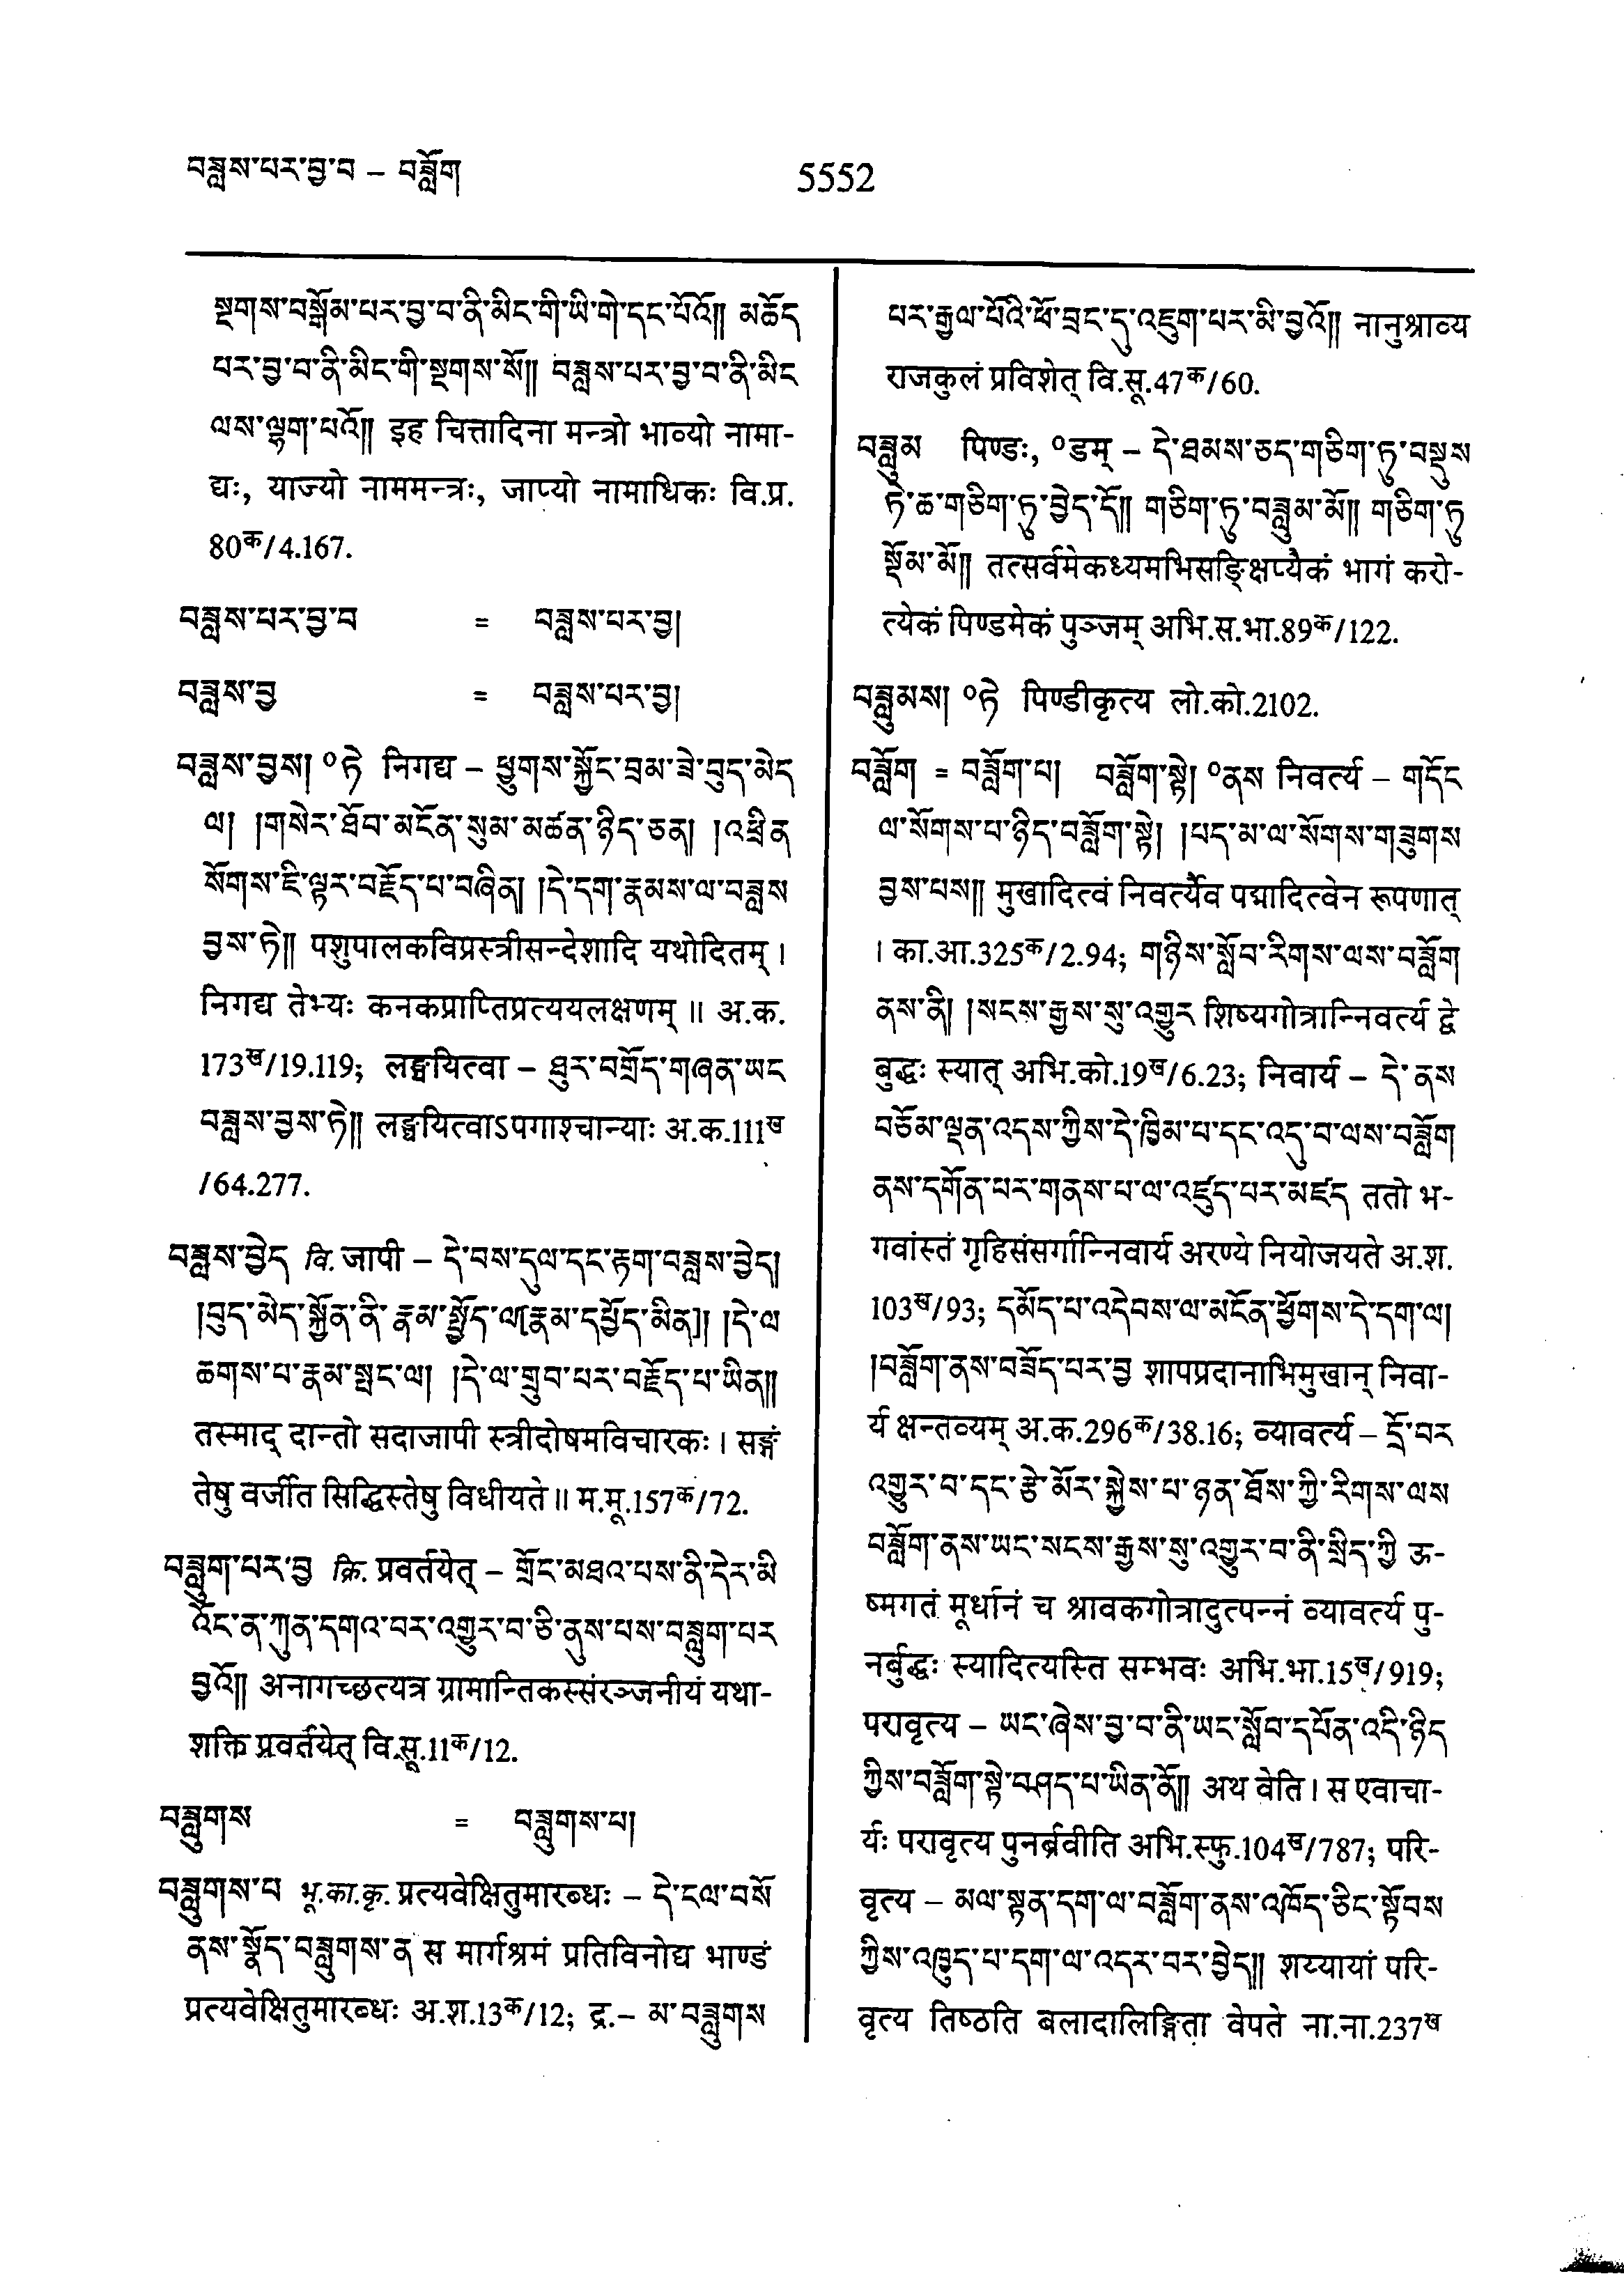 བཟླས་པར་བྱ་བ – བཟློག
5552
སྔགས་བསྒོམ་པར་བྱ་བ་ནི་མིང་གི་ཡི་གེ་དང་པོའོ༎ མཆོད
པར་བྱ་བ་ནི་མིང་གི་སྔགས་སོ༎ བཟླས་པར་བྱ་བ་ནི་མིང
ལས་ལྷག་པའོ༎ इह चित्तादिना मन्त्रो भाव्यो नामा-
द्यः, याज्यो नाममन्त्रः, जाप्यो नामाधिकः वि.प्र.
80क/4.167.
བཟླས་པར་བྱ་བ = བཟླས་པར་བྱ།
བཟླས་བྱ = བཟླས་པར་བྱ།
བཟླས་བྱས། ०ཏེ निगद्य – ཕྱུགས་སྐྱོང་བྲམ་ཟེ་བུད་མེད
ལ། །གསེར་ཐོབ་མངོན་སུམ་མཚན་ཉིད་ཅན། །འཕྲིན
སོགས་ཇི་ལྟར་བརྗོད་པ་བཞིན། །དེ་དག་རྣམས་ལ་བཟླས
བྱས་ཏེ༎ पशुपालकविप्रस्त्रीसन्देशादि यथोदितम् ।
निगद्य तेभ्यः कनकप्राप्तिप्रत्ययलक्षणम् ॥ अ.क.
173ख/19.119; लङ्घयित्वा – ཐུར་བགྲོད་གཞན་ཡང
བཟླས་བྱས་ཏེ༎ लङ्घयित्वाऽपगाश्चान्याः अ.क.111ख
/64.277.
བཟླས་བྱེད वि. जापी – དེ་བས་དུལ་དང་རྟག་བཟླས་བྱེད།
།བུད་མེད་སྐྱོན་ནི་རྣམ་སྤྱོད་ལ[རྣམ་དཔྱོད་མིན]། །དེ་ལ
ཆགས་པ་རྣམ་སྤང་ལ། །དེ་ལ་གྲུབ་པར་བརྗོད་པ་ཡིན༎
तस्माद् दान्तो सदाजापी स्त्रीदोषमविचारकः । सङ्गं
तेषु वर्जीत सिद्धिस्तेषु विधीयते ॥ म.मू.157क/72.
བཟླུག་པར་བྱ क्रि. प्रवर्तयेत् – གྲོང་མཐའ་པས་ནི་དེར་མི
འོང་ན་ཀུན་དགའ་བར་འགྱུར་བ་ཅི་ནུས་པས་བཟླུག་པར
བྱའོ༎ अनागच्छत्यत्र ग्रामान्तिकस्संरञ्जनीयं यथा-
शक्ति प्रवर्तयेत् वि.सू.11क/12.
བཟླུགས = བཟླུགས་པ།
བཟླུགས་པ भू.का.कृ. प्रत्यवेक्षितुमारब्धः – དེ་ངལ་བསོ
ནས་སྣོད་བཟླུགས་ན स मार्गश्रमं प्रतिविनोद्य भाण्डं
प्रत्यवेक्षितुमारब्धः अ.श.13क/12; द्र.– མ་བཟླུགས
པར་རྒྱལ་པོའི་ཕོ་བྲང་དུ་འཇུག་པར་མི་བྱའོ༎ नानुश्राव्य
राजकुलं प्रविशेत् वि.सू.47क/60.
བཟླུམ पिण्डः, ०डम् – དེ་ཐམས་ཅད་གཅིག་ཏུ་བསྡུས
ཏེ་ཆ་གཅིག་ཏུ་བྱེད་དོ༎ གཅིག་ཏུ་བཟླུམ་མོ༎ གཅིག་ཏུ
སྡོམ་མོ༎ तत्सर्वमेकध्यमभिसङ्क्षिप्यैकं भागं करो-
त्येकं पिण्डमेकं पुञ्जम् अभि.स.भा.89क/122.
བཟླུམས། ०ཏེ पिण्डीकृत्य लो.को.2102.
བཟློག = བཟློག་པ། བཟློག་སྟེ། ०ནས निवर्त्य – གདོང
ལ་སོགས་པ་ཉིད་བཟློག་སྟེ། །པད་མ་ལ་སོགས་གཟུགས
བྱས་པས༎ मुखादित्वं निवर्त्यैव पद्मादित्वेन रूपणात्
। का.आ.325क/2.94; གཉིས་སློབ་རིགས་ལས་བཟློག
ནས་ནི། །སངས་རྒྱས་སུ་འགྱུར शिष्यगोत्रान्निवर्त्य द्वे
बुद्धः स्यात् अभि.को.19ख/6.23; निवार्य – དེ་ནས
བཅོམ་ལྡན་འདས་ཀྱིས་དེ་ཁྱིམ་པ་དང་འདུ་བ་ལས་བཟློག
ནས་དགོན་པར་གནས་པ་ལ་འཛུད་པར་མཛད ततो भ-
गवांस्तं गृहिसंसर्गान्निवार्य अरण्ये नियोजयते अ.श.
103ख/93; དམོད་པ་འདེབས་ལ་མངོན་ཕྱོགས་དེ་དག་ལ།
།བཟློག་ནས་བཟོད་པར་བྱ शापप्रदानाभिमुखान् निवा-
र्य क्षन्तव्यम् अ.क.296क/38.16; व्यावर्त्य – དྲོ་བར
འགྱུར་བ་དང་རྩེ་མོར་སྐྱེས་པ་ཉན་ཐོས་ཀྱི་རིགས་ལས
བཟློག་ནས་ཡང་སངས་རྒྱས་སུ་འགྱུར་བ་ནི་སྲིད་ཀྱི ऊ-
ष्मगतं मूर्धानं च श्रावकगोत्रादुत्पन्नं व्यावर्त्य पु-
नर्बुद्धः स्यादित्यस्ति सम्भवः अभि.भा.15ख/919;
परावृत्य – ཡང་ཞེས་བྱ་བ་ནི་ཡང་སློབ་དཔོན་འདི་ཉིད
ཀྱིས་བཟློག་སྟེ་བཤད་པ་ཡིན་ནོ༎ अथ वेति । स एवाचा-
र्यः परावृत्य पुनर्ब्रवीति अभि.स्फु.104ख/787; परि-
वृत्य – མལ་སྟན་དག་ལ་བཟློག་ནས་འཁོད་ཅིང་སྟོབས
ཀྱིས་འཁྱུད་པ་དག་ལ་འདར་བར་བྱེད༎ शय्यायां परि-
वृत्य तिष्ठति बलादालिङ्गिता वेपते ना.ना.237ख